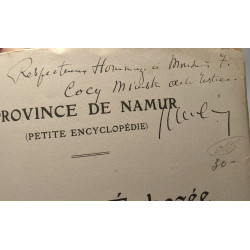 Respectueux Hommage à Monsieur F.
Cocq Ministre de la Justice.
PROVINCE DE NAMUR
(PETITE ENCYCLOPÉDIE)
30-